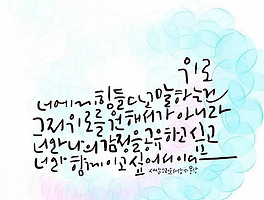 위로
너에게 힘들다고 말하는건
그저 위로를 원해서가 아니라
너와 나의 감정을 공유하고 싶고
너와 함께이고 싶어서이다